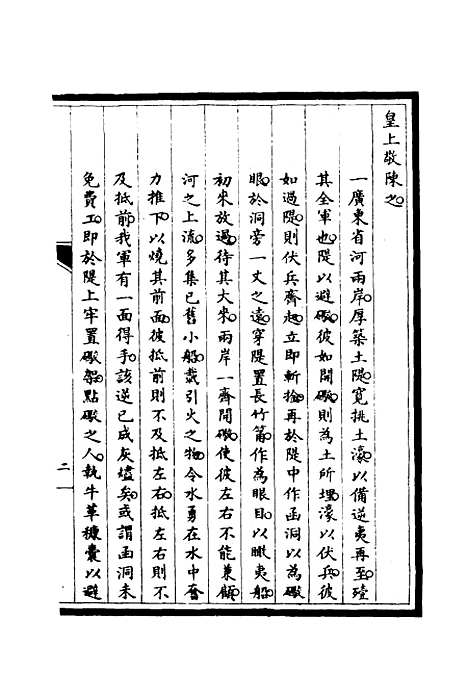 皇上敬陳之
一廣東省河兩岸厚築土隄寬挑土濠以備逆夷再至殪
其全軍也隄以避礮彼如開礮則為土所埋濠以伏兵彼
如過隄則伏兵齊起立即斬擒再於隄中作函洞以為礮
眼於洞旁一丈之遠穿隄置長竹筩作為眼目以瞰夷船
初來放過待其大來兩岸一齊開礮使彼左右不能兼顧
河之上流多集已舊小船載引火之物令水勇在水中奮
力推下以燒其前面彼抵前則不及抵左右抵左右則不
及抵前我軍有一面得手該逆已成灰燼矣或謂函洞未
免費工即於隄上牢置礮架點礮之人執牛革糠囊以避
二